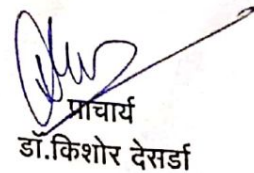 प्राचार्य
डॉ.किशोर देसर्डा